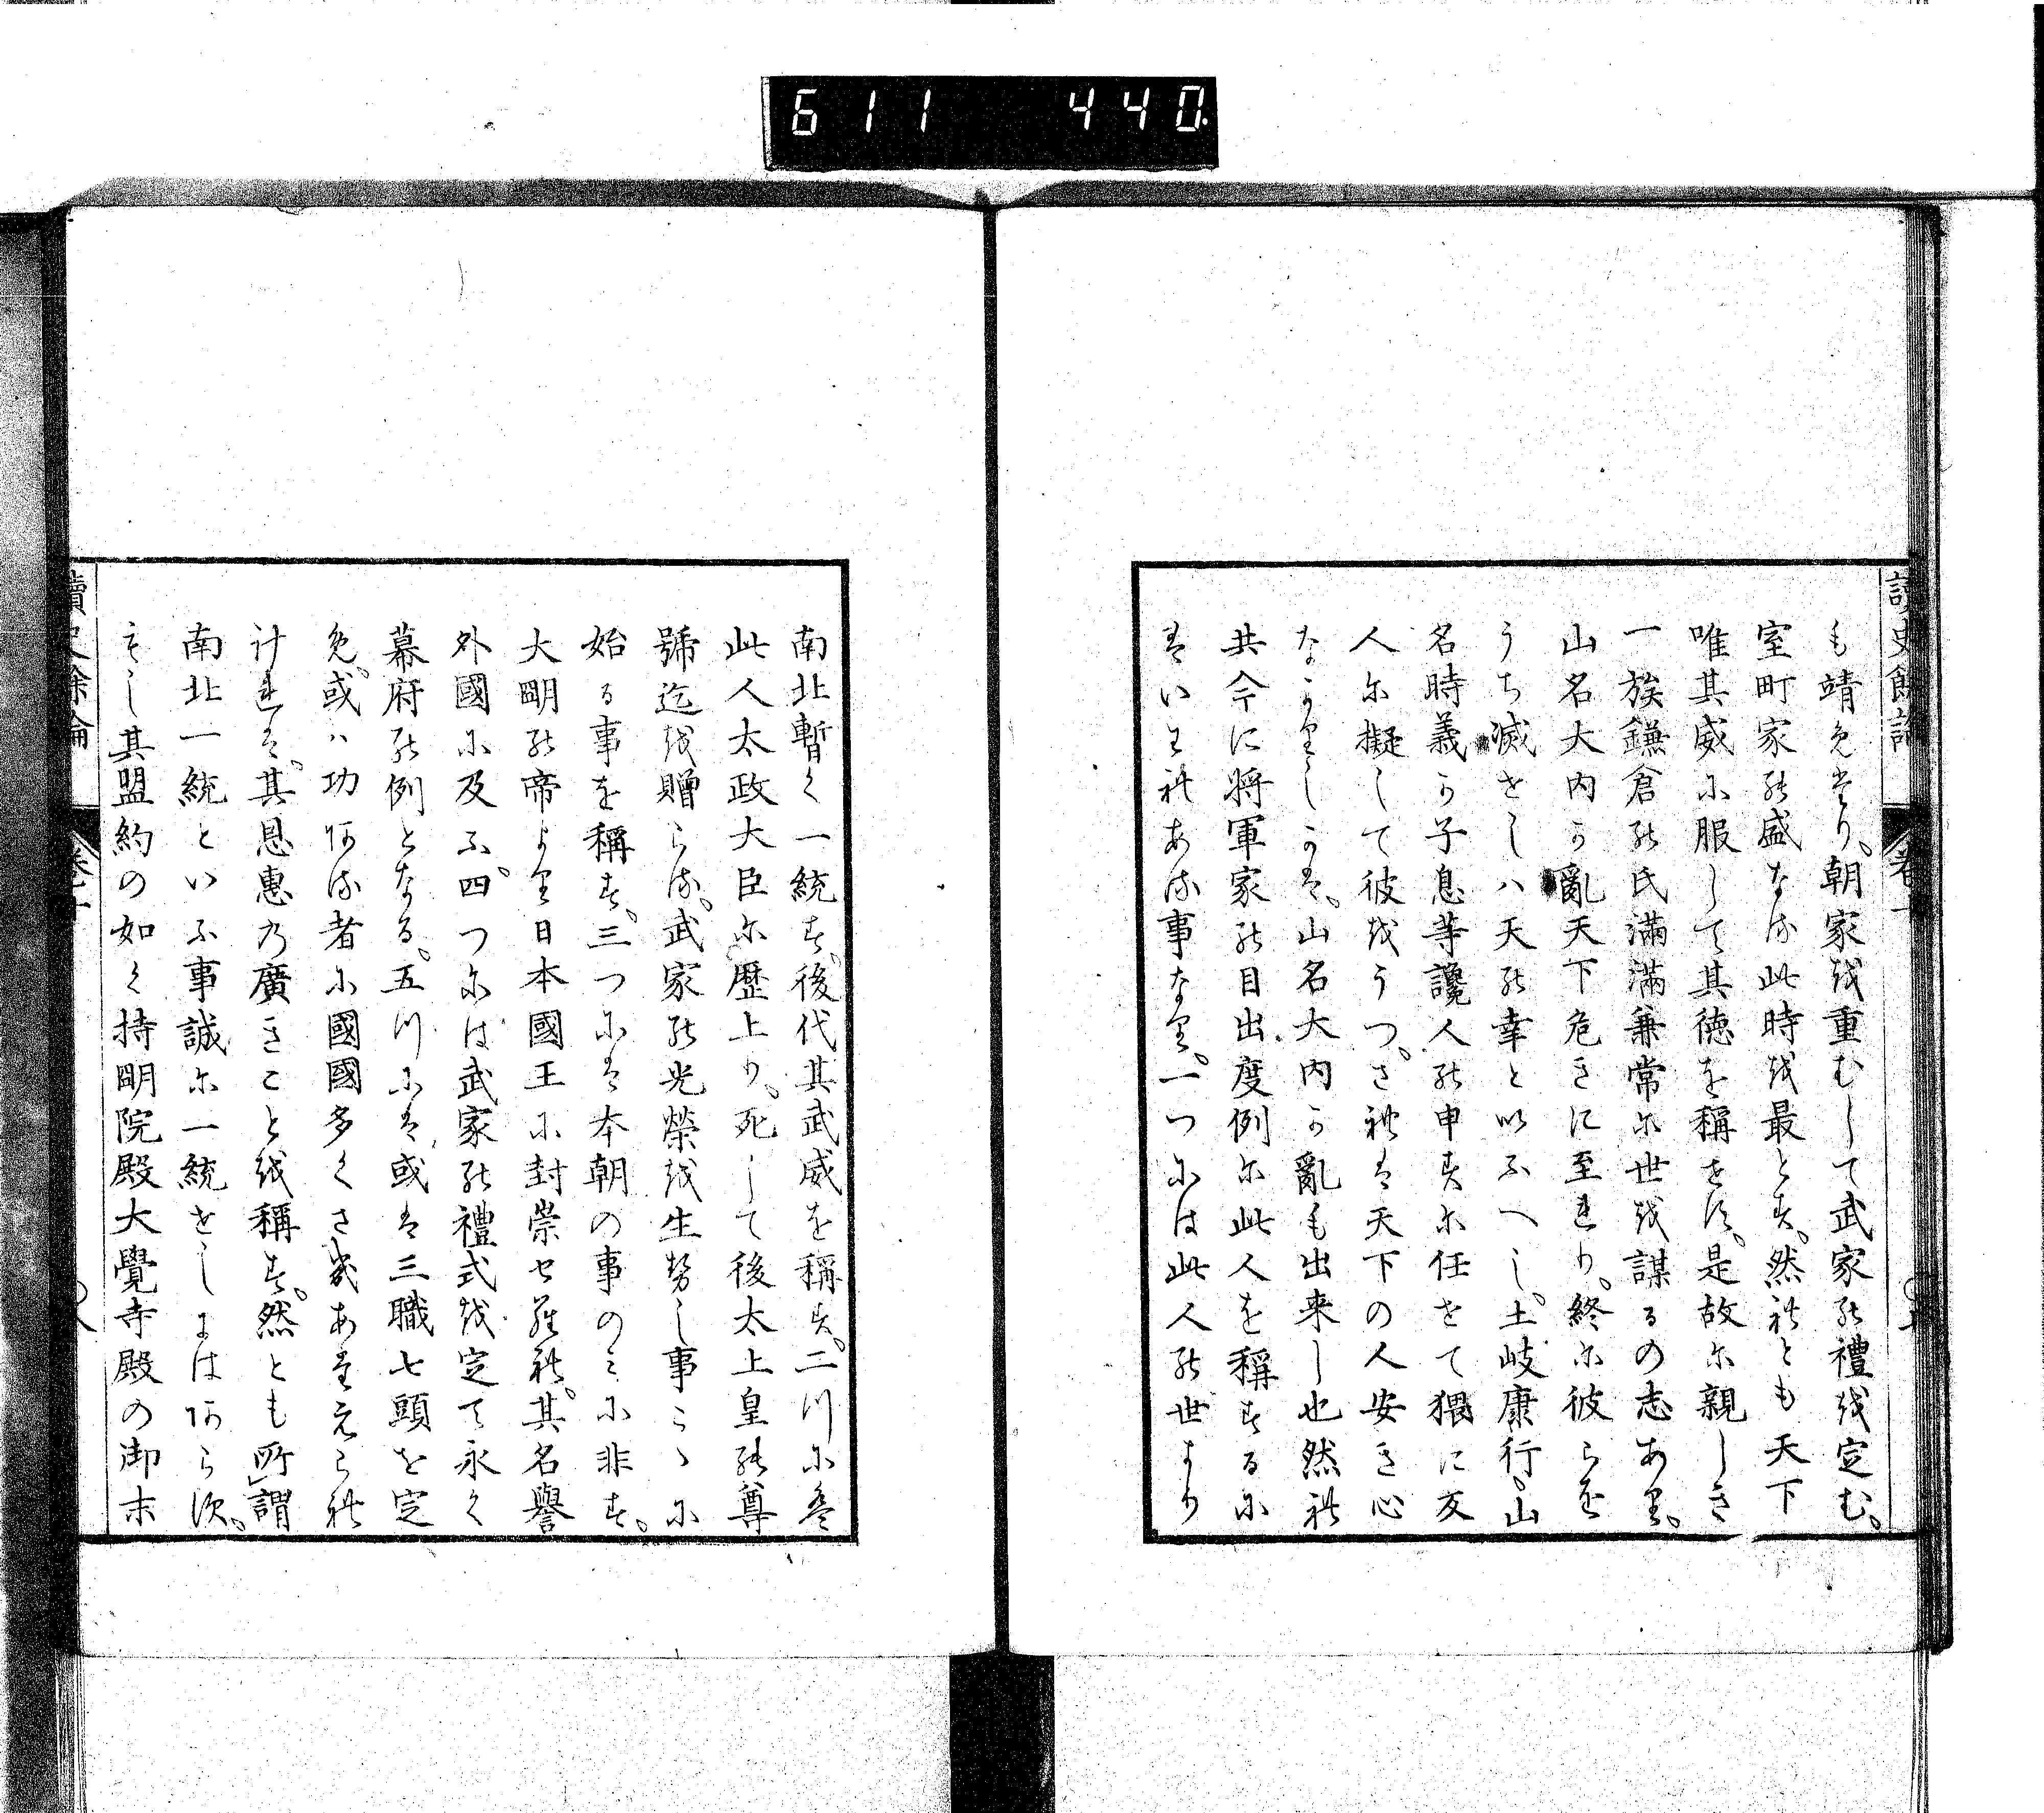 611 440
讀史餘論 卷十
も靖めたり。朝家を重むして武家の禮を定む。
室町家の盛なる此時を最とす。然れとも天下
唯其威に服して其徳を稱せす。是故に親しき
一族鎌倉の氏滿滿兼常に世を謀るの志あり。
山名大内か亂天下危きに至れり。終に彼らを
うち滅せしハ天の幸と以ふへし。土岐康行。山
名時義か子息等讒人の申すに任せて猥に友
人に擬して彼をうつ。されは天下の人安き心
なかりしかは。山名大内か亂も出来し也然れ
共今に將軍家の目出度例に此人を稱するに
はいわれある事なり。一つには此人の世より
南北暫く一統す。後代其武威を稱す。二川には
此人太政大臣に歴上り。死して後太上皇の尊
號迄を贈らる。武家の光榮を生せし事こゝに
始る事を稱す。三つには本朝の事のミに非す。
大明の帝より日本國王に封崇せられ。其名譽
外國に及ふ。四つには武家の禮式を定て永く
幕府の例となる。五川には或は三職七頭を定
め。或ハ功ある者に國國多くさきあたえられ
計れは。其恩惠乃廣きことを稱す。然とも所謂
南北一統といふ事誠に一統せしにはあらす。
もし其盟約の如く持明院殿大覺寺殿の御末
讀史餘論 卷十 八